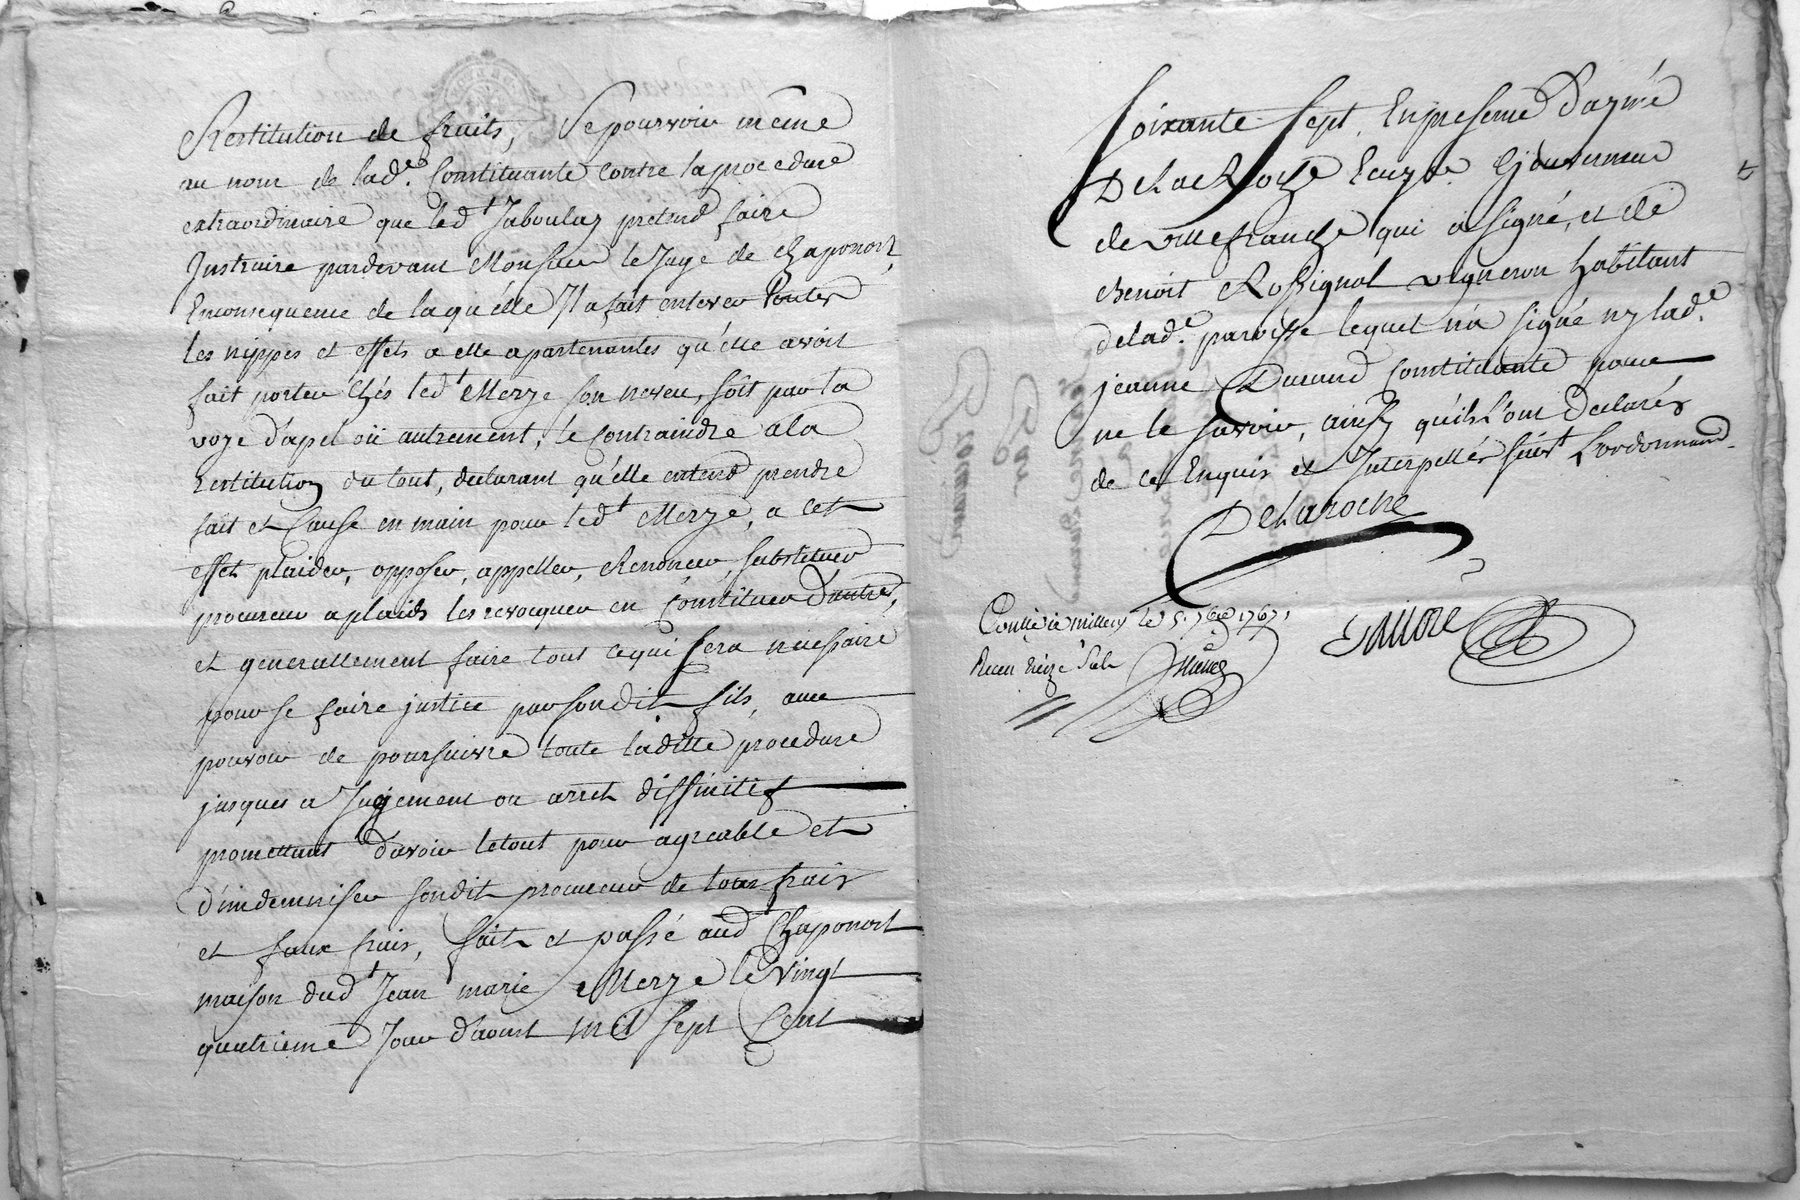 Restitution de fruits, Se pourvoir même
au nom de lad.e Constituante contre la procedure
extraordinaire que led.t Jaboulay pretend faire
Instruire pardevant Monsieur le Juge de Chaponost,
Enconsequence de laquélle Il a fait enlever toutes
les nippes et effets a elle apartenantes qu'élle avoit
fait porter Chés led.t Merze son neveu, soit par la
voye d'apel oü autrement, le Contraindre a la
Restitution du tout, declarant qu'élle entend prendre
fait et Cause en main pour led.t Merze, a cet
effet plaider, opposer, appeller, Renoncer, substituer
procureur a plaids les revocquer en Constituer D'autres,
et generallement faire tout cequi sera necessaire
pour se faire justice par sondit fils, avec
pouvoir de poursuivre toute laditte procedure
jusques a Jugement ou arret diffinitif
promettant d'avoir letout pour agreable et
d'indemniser sondit procureur de tous frais
et faux frais, fait et passé aud Chaponost
maison dud.t Jean marie Merze le vingt
quatrieme Jour d'aoust mil sept Cent
Soixante sept, En presence D'aymé
DelaRoche Ecuyer Gouverneur
de villefranche qui a signé, et de
Benoit Rossignol vigneron habitant
de lad.e paroisse lequel n'a signé ny lad.e
jeanne Durand Constituante pour
ne le savoir, ainsy qu'ils l'ont Declarés
de ce Enquis et Interpellés suiv.t L'ordonnance
DeLaroche
Conllé a millery le 5. 7bre 1767.
Recu treize sols